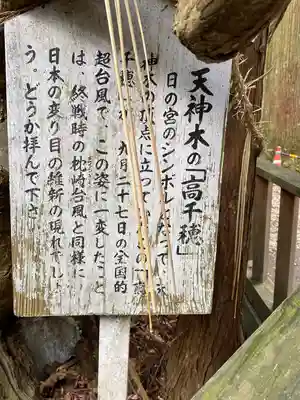 天神木の「高千穂」
日の宮のシンボルになって
神木が 点に立って
千穂 九月二十七日の全国的
超台風で、この姿に一変したこと
は、終戦時の枕崎台風と同様に
日本の変り目の維新の現れでしょ
う。どうか拝んで下さい